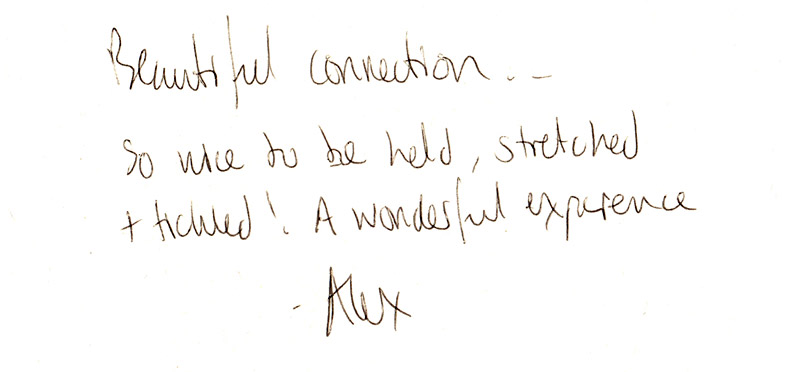 Beautiful connection...
So nice to be held, stretched
+ tickled! A wonderful experience
- Alex